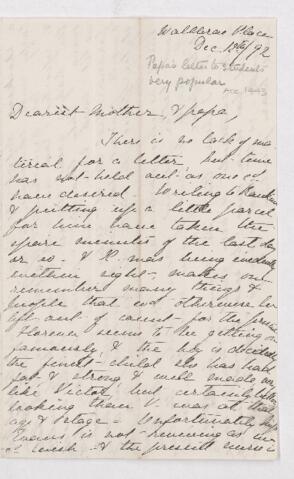 Place
Dec. 12th/92
Papa's letter to students
very popular
Dearest Mother & papa,
There is no lack of ma
terial for a letter, but time
has not held out as one cd.
have desired. Writing to
& putting up a little parcel
for him have taken the
spare minutes of the last day
or so. & R. was being
makes one
remember many things &
people that wd. otherwise be
left out of count for the
Florence seems to be getting on
famously & the boy is decidedly
the finest child she has had
fat & strong & well made
like Victor, but certainly
looking than V. was at that
age & stage. Unfortunately
is not as
wish. & the present nurse is